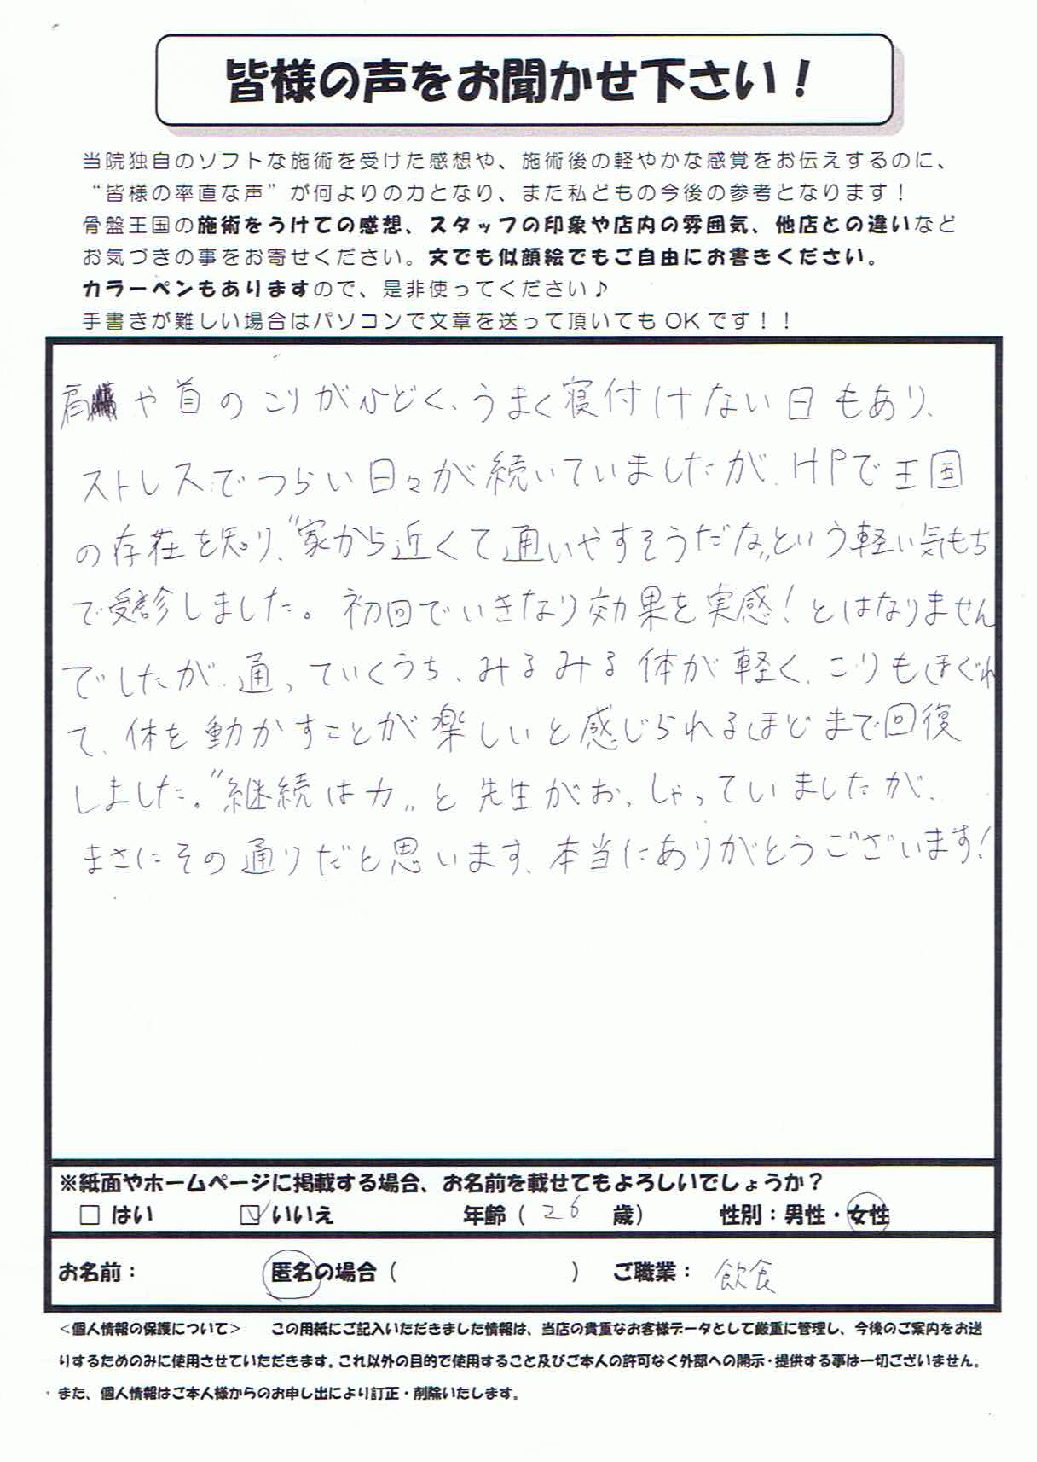 皆様の声をお聞かせ下さい！
当院独自のソフトな施術を受けた感想や、施術後の軽やかな感覚をお伝えするのに、
“皆様の率直な声”が何よりの力となり、また私どもの今後の参考となります！
骨盤王国の施術をうけての感想、スタッフの印象や店内の雰囲気、他店との違いなど
お気づきの事をお寄せください。文でも似顔絵でもご自由にお書きください。
カラーペンもありますので、是非使ってください♪
手書きが難しい場合はパソコンで文章を送って頂いてもOKです！！
肩や首のこりがひどく、うまく寝付けない日もあり、
ストレスでつらい日々が続いていましたが、HPで王国
の存在を知り、“家から近くて通いやすそうだな„という軽い気もち
で受診しました。初回でいきなり効果を実感！とはなりません
でしたが、通っていくうち、みるみる体が軽く、こりもほぐれ
て、体を動かすことが楽しいと感じられるほどまで回復
しました。“継続は力„と先生がおっしゃっていましたが、
まさにその通りだと思います。本当にありがとうございます！
※紙面やホームページに掲載する場合、お名前を載せてもよろしいでしょうか？
□ はい ☑ いいえ 年齢（ 26 歳） 性別：男性・女性
お名前： 匿名の場合（ ） ご職業： 飲食
＜個人情報の保護について＞ この用紙にご記入いただきました情報は、当店の貴重なお客様データとして厳重に管理し、今後のご案内をお送
りするためのみに使用させていただきます。これ以外の目的で使用すること及びご本人の許可なく外部への開示・提供する事は一切ございません。
また、個人情報はご本人様からのお申し出により訂正・削除いたします。